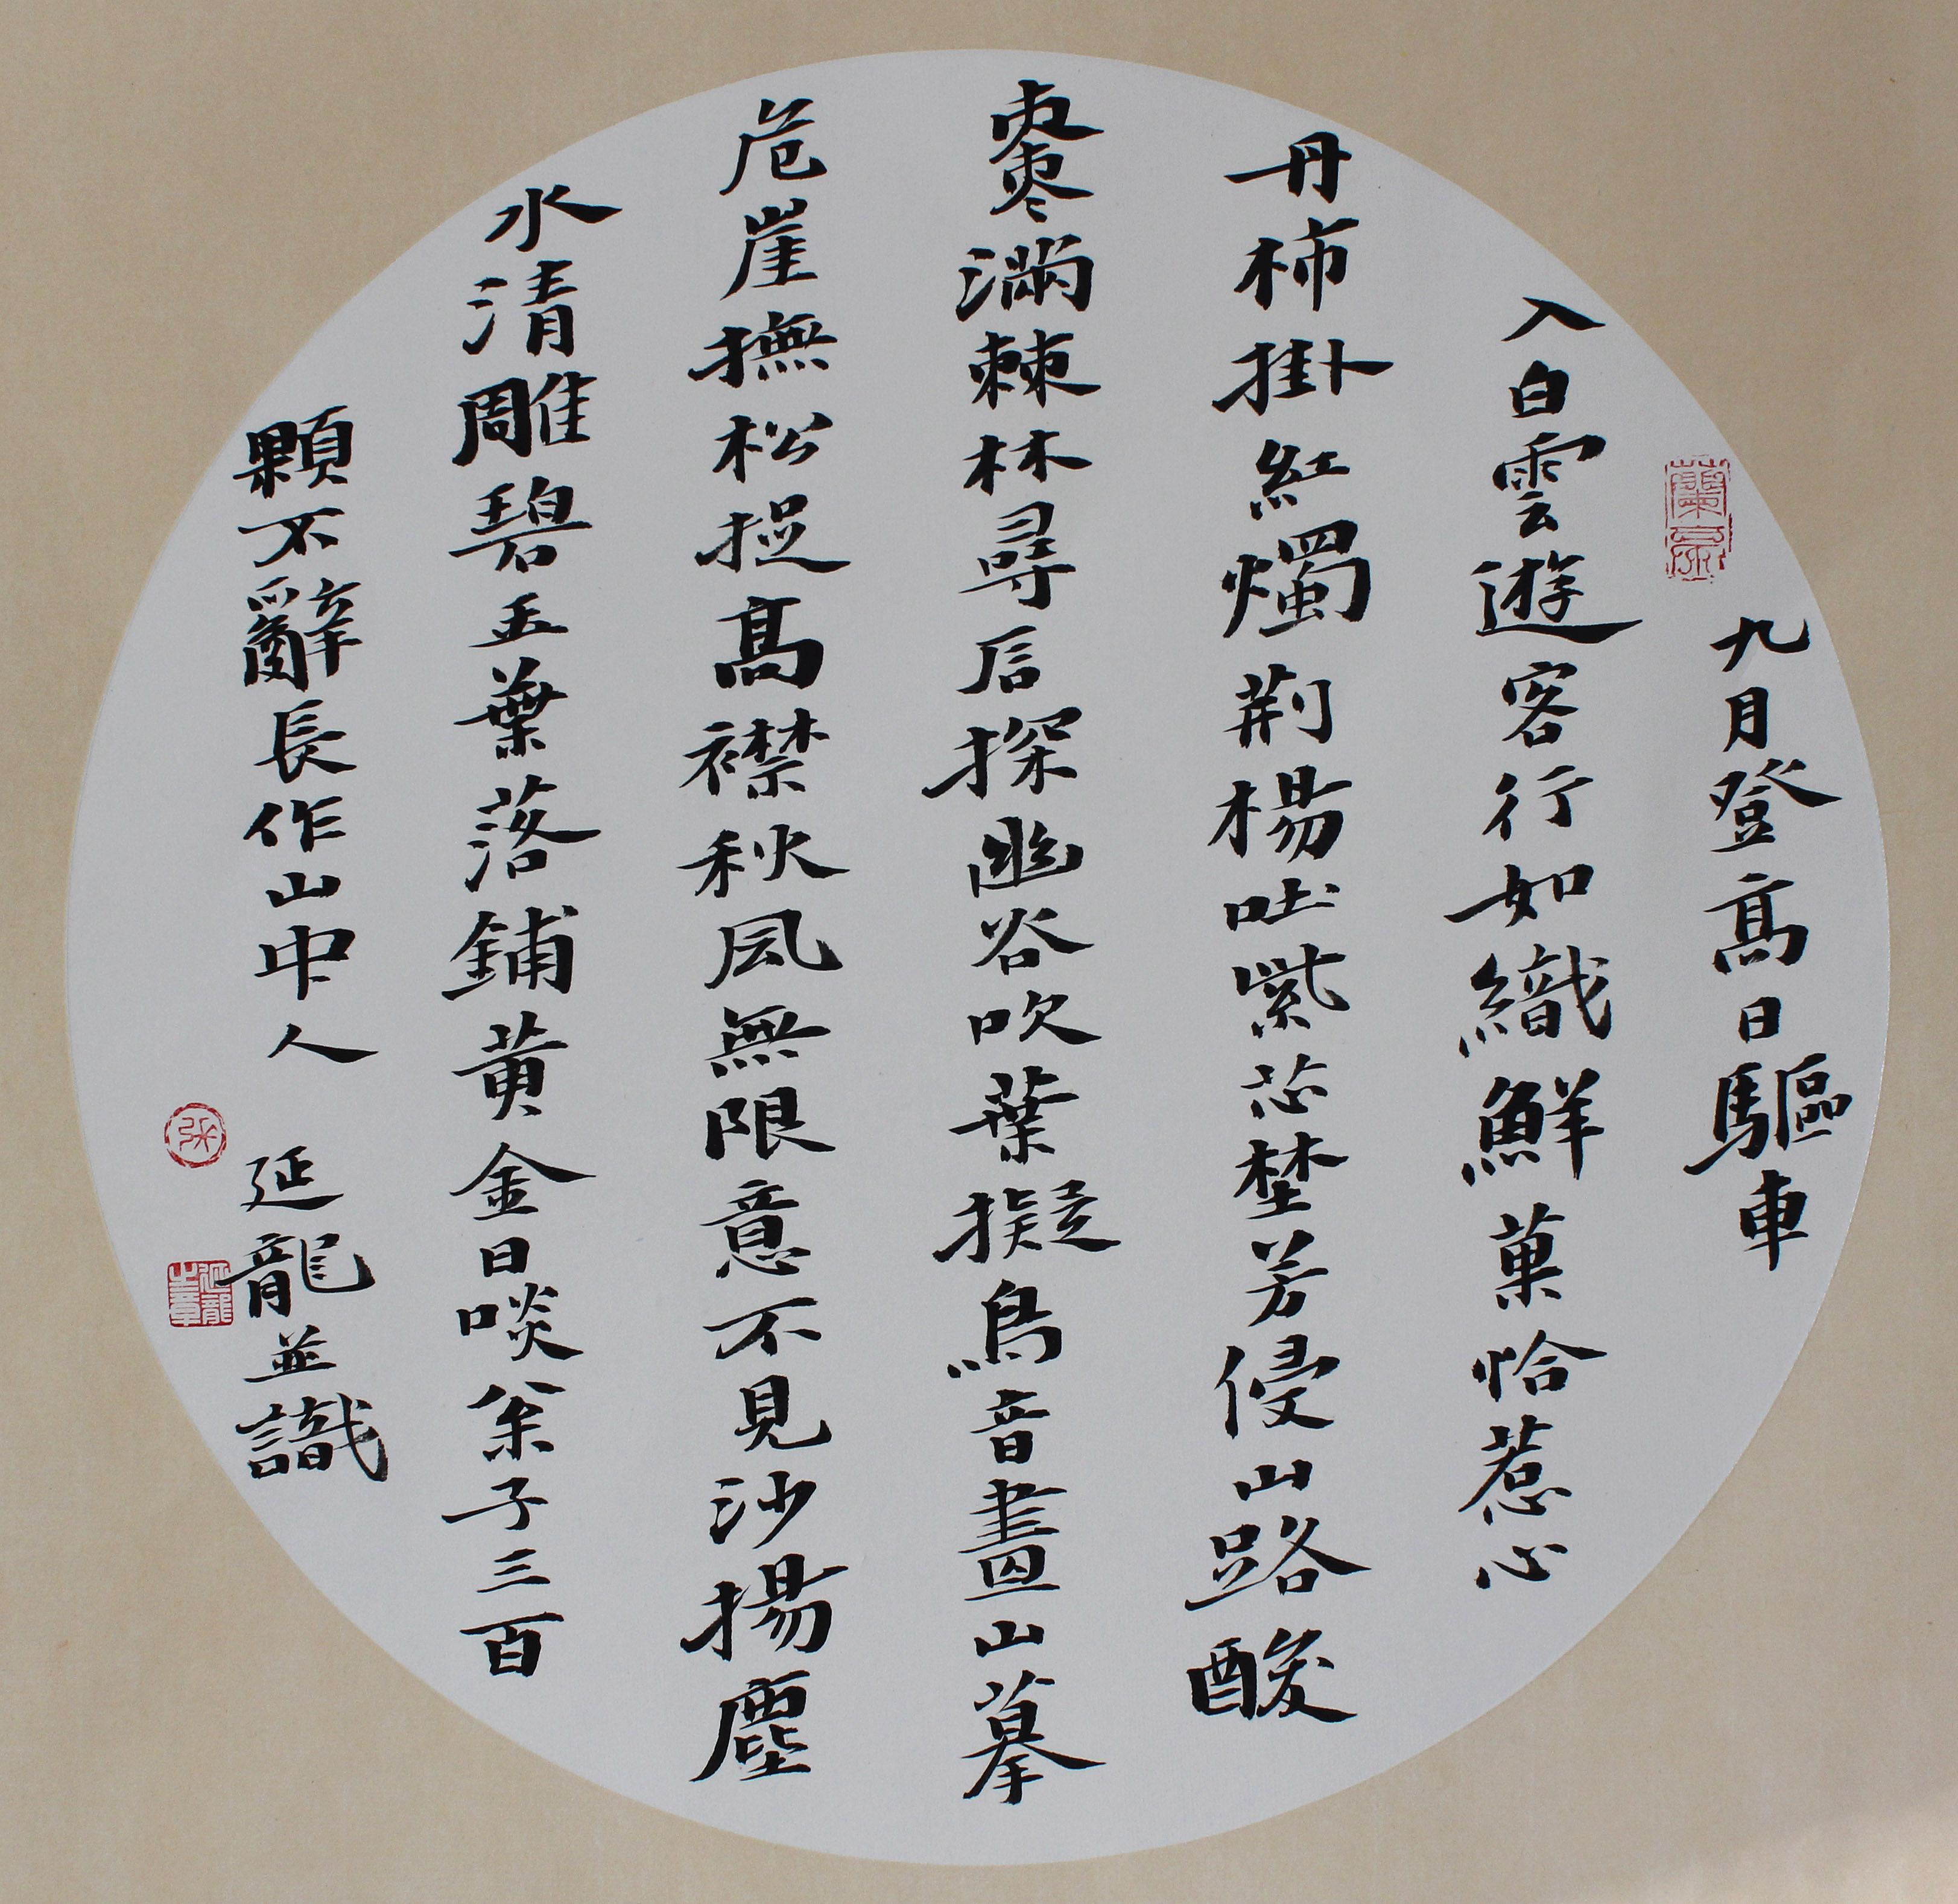 九月登高日驅車
入白雲遊客行如織鮮菓恰惹心
丹柿掛紅燭荊楊吐紫芯埜芳侵山路酸
棗滿棘林尋后探幽谷吹葉擬鳥音畫山摹
危崖撫松捉高襟秋风無限意不見沙揚塵
水清雕碧玉葉落鋪黄金日啖粂子三百
顆不辭長作山中人 延龍並識
延龍之章